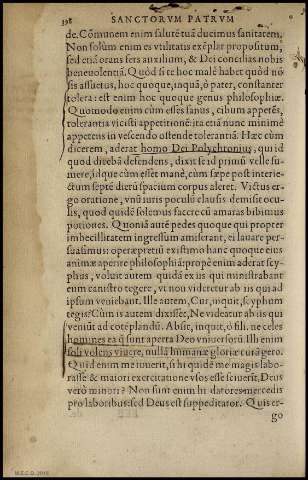 398 SANCTORVM PATRVM
de. Cōmunem enim salutē tuā ducimus sanitatem,
Non solùm enim es vtilitatis exēplar propositum,
sed etiā orans fers auxilium, & Dei concilias nobis
beneuolentiā. Quòd si te hoc malè habet quòd nō
sis assuetus, hoc quoque, inquā, ô pater, constanter
tolera: est enim hoc quoque genus philosophiæ.
Quomodo enim cùm esses sanus, cibum appetēs,
tolerantia vicisti appetitionē: ita etiā nunc minimè
appetens in vescendo ostende tolerantiā. Hæc cùm
dicerem, aderat homo Dei Polychronius, qui id
quod dicebā defendens, dixit se id primū velle su-
mere, idque cùm esset manè, cùm sæpe post interie-
ctum septē dierū spacium corpus aleret. Victus er-
go oratione, vnū iuris poculū clausis demisit ocu-
lis, quod quidē solemus facere cū amaras bibimus
potiones. Quoniā autē pedes quoque qui propter
imbecillitatem ingressum amiserant, ei lauare per-
suasimus: operæpretiū existimo hanc quoque eius
animæ aperire philosophiā: propè enim aderat scy-
phus, voluit autem quidā ex iis qui ministrabant
eum canistro tegere, vt non videretur ab iis qui ad
ipsum veniebant. Ille autem, Cur, inquit, scyphum
tegis? Cùm is autem dixisset, Ne videatur ab iis qui
veniūt ad cōteplandū. Absit, inquit, ô fili. ne celes
homines ea q̄ sunt aperta Deo vniuersorū. Illi enim
soli volens viuere, nullā humanæ gloriæ curā gero.
Quid enim me iuuerit, si hi quidē me magis labo-
rasse & maiori exercitatione vsos esse sciuerīt, Deus
verò minori? Non sunt enim hi datores mercedis
pro laboribus: sed Deus est suppeditator. Quis er-
go